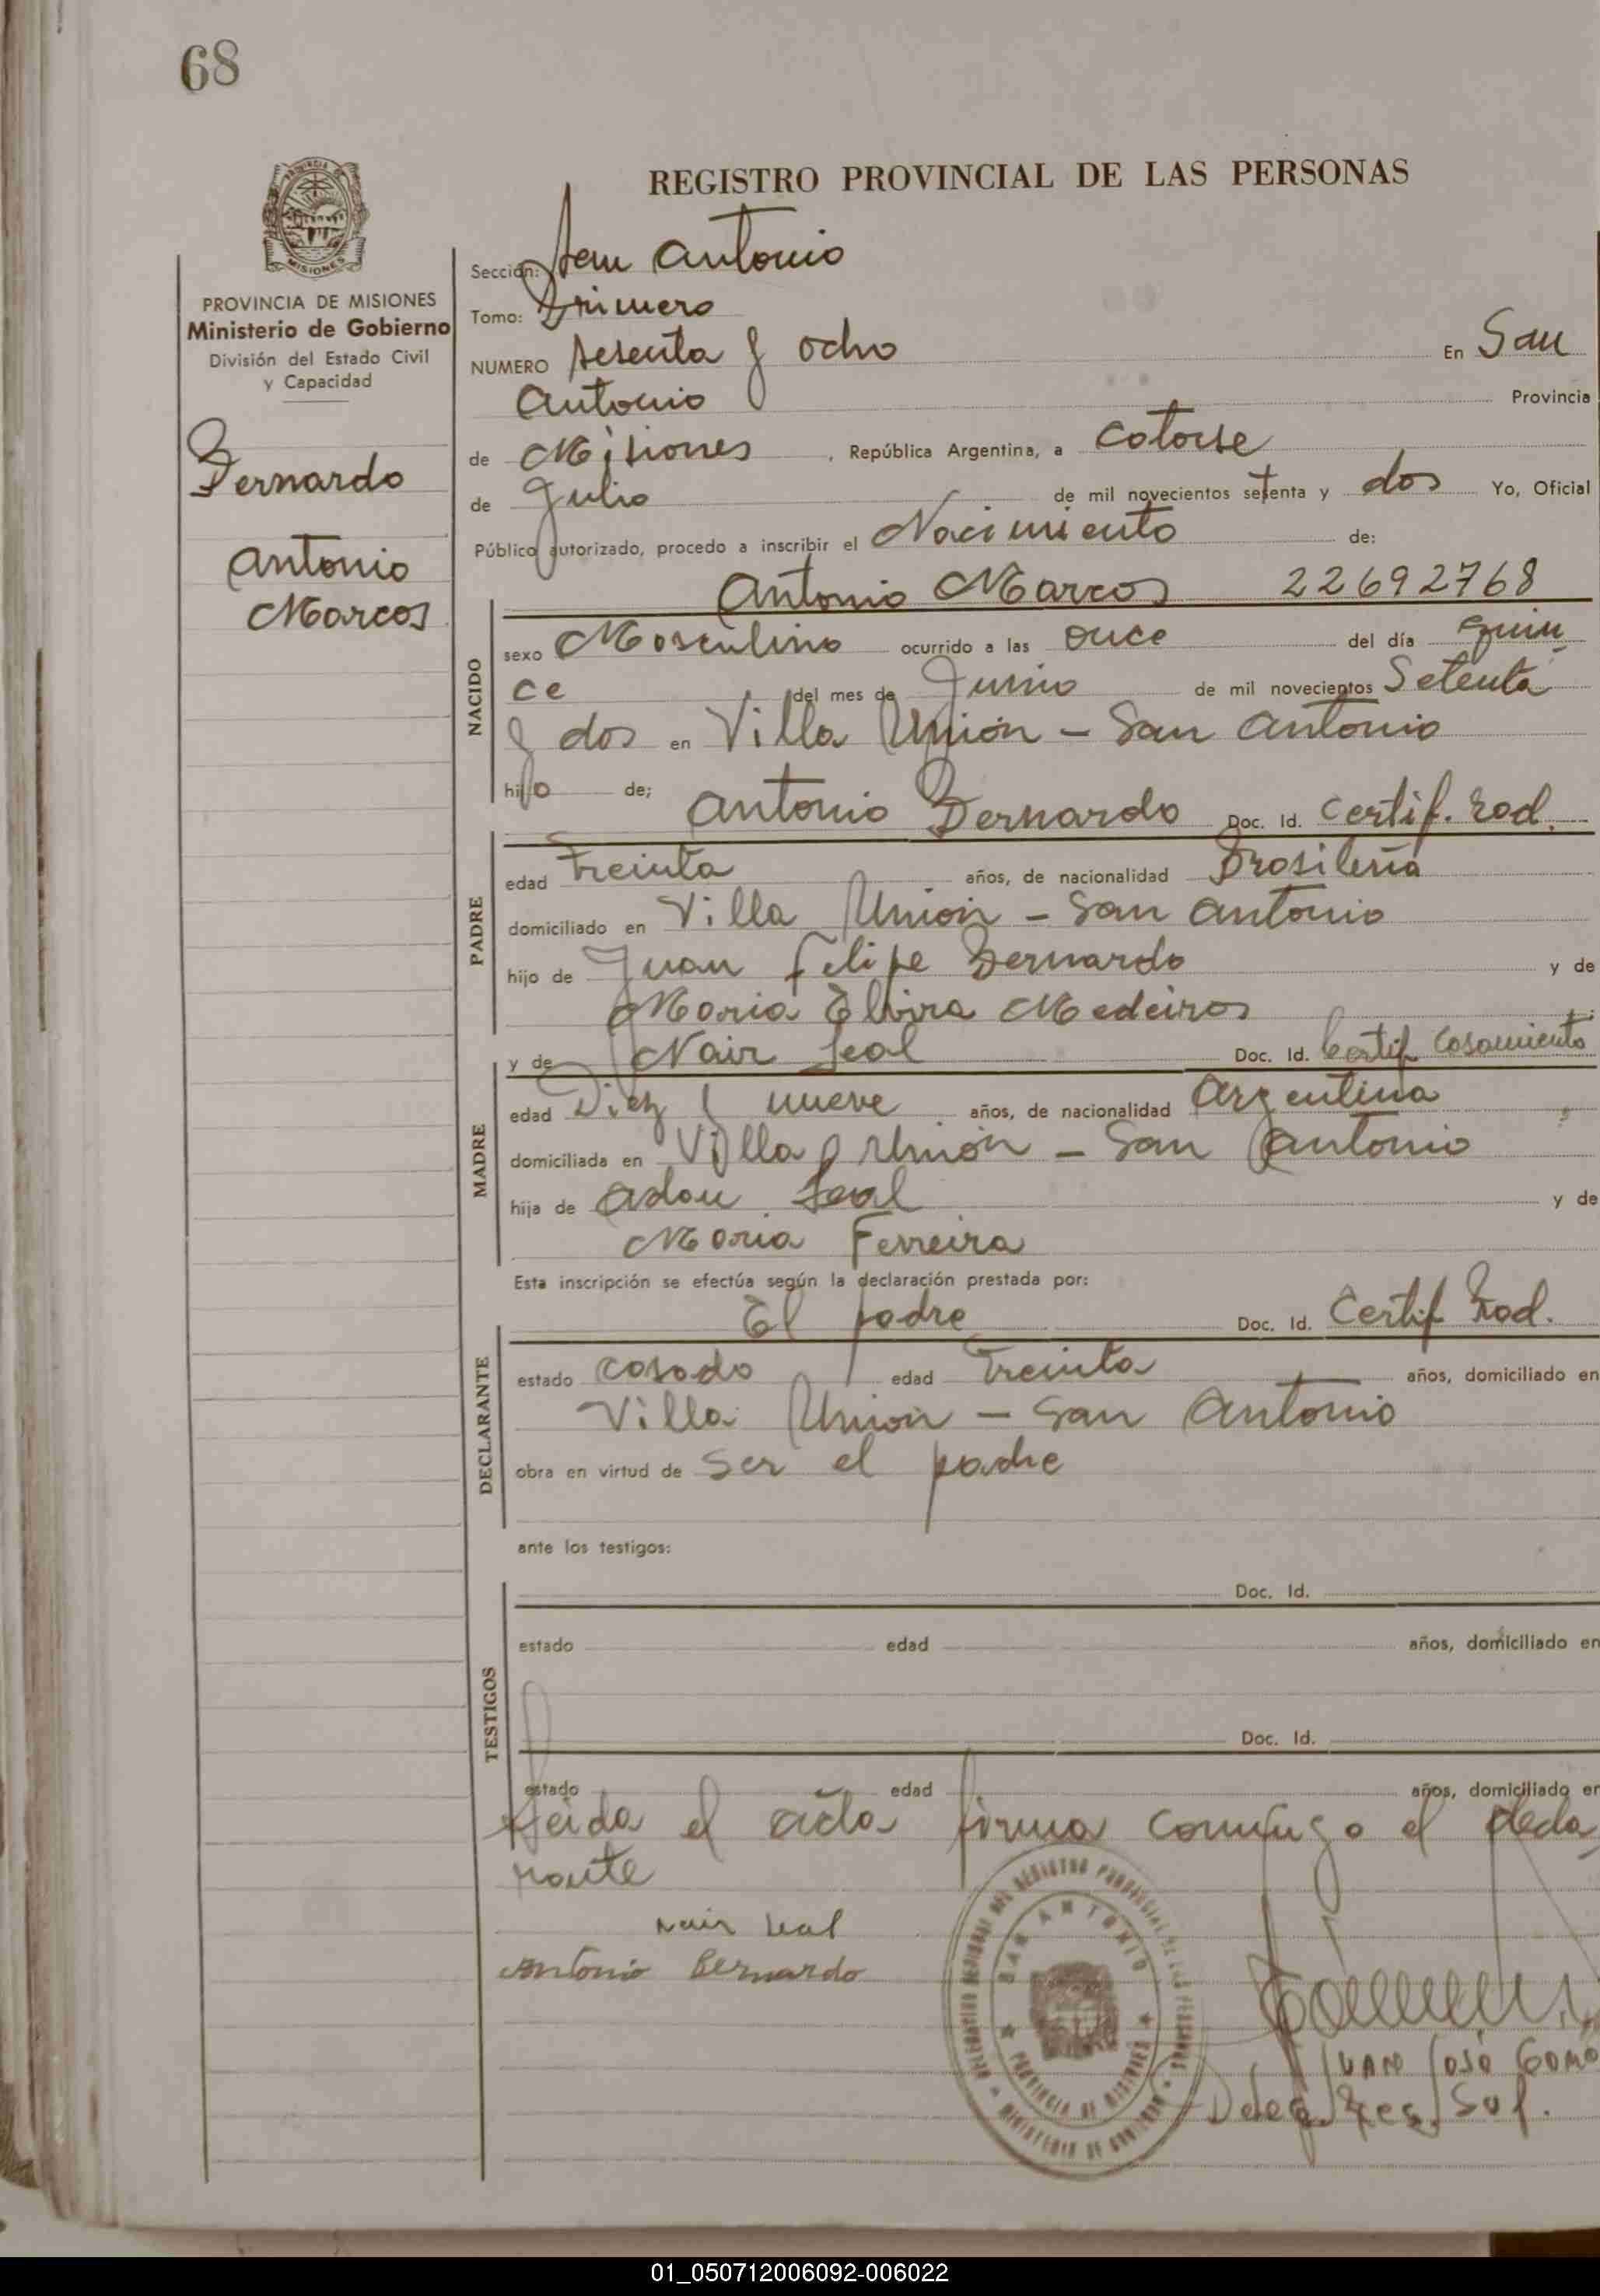 68
REGISTRO PROVINCIAL DE LAS PERSONAS
MISIONES
PROVINCIA DE MISIONES
Ministerio de Gobierno
División del Estado Civil
y Capacidad
Bernardo
Antonio
Marcos
Sección: San Antonio
Tomo: Primero
NUMERO sesenta y ocho En San
Antonio Provincia
de Misiones , República Argentina, a catorse
de Julio de mil novecientos setenta y dos Yo, Oficial
Público autorizado, procedo a inscribir el Nacimiento de:
Antonio Marcos 22692768
NACIDO
sexo Masculino ocurrido a las once del día quin
ce del mes de Junio de mil novecientos Setenta
y dos en Villa Unión - San Antonio
hijo de; Antonio Bernardo Doc. Id. Certif. Rad.
PADRE
edad Treinta años, de nacionalidad Brasileña
domiciliado en Villa Unión - San Antonio
hijo de Juan Felipe Bernardo y de
Maria Elvira Medeiros
y de Nair Leal Doc. Id. Certif Casamiento
MADRE
edad Diez y nueve años, de nacionalidad Argentina
domiciliada en Villa Unión - San Antonio
hija de Adan Leal y de
Maria Ferreira
Esta inscripción se efectúa según la declaración prestada por:
El padre Doc. Id. Certif Rad.
DECLARANTE
estado casado edad Treinta años, domiciliado en
Villa Union - San Antonio
obra en virtud de ser el padre
ante los testigos:
TESTIGOS
Doc. Id.
estado edad años, domiciliado en
Doc. Id.
estado edad años, domiciliado en
Leida el acta firma conmigo el decla
rante
Nair Leal
Antonio Bernardo
SAN ANTONIO
PROVINCIA DE MISIONES
MINISTERIO DE GOBIERNO
JUAN JOSÉ
01_050712006092-006022